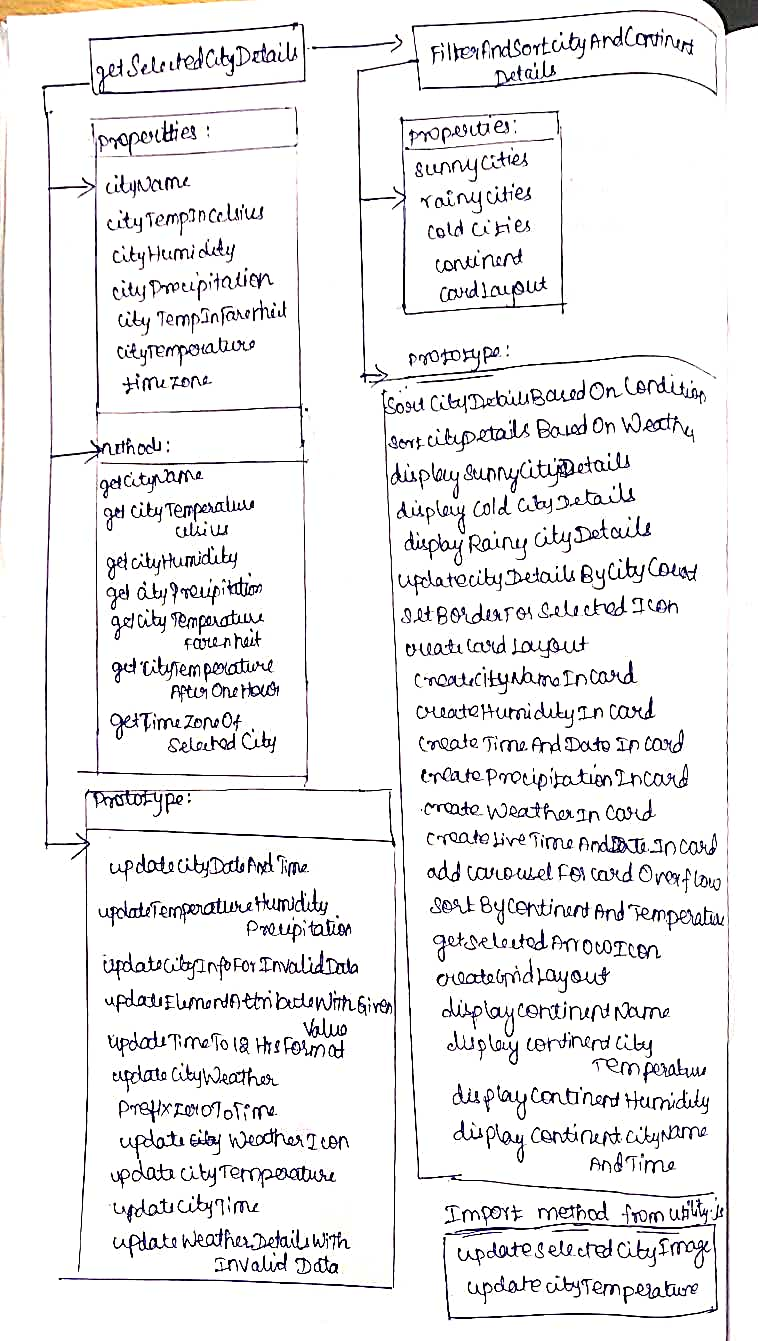 getSelectedCityDetails
Properties:
cityName
cityTempInCelsius
cityHumidity
cityPrecipitation
cityTempInFarerheit
cityTemperature
timezone
methods:
getCityName
getCityTemperature
Celsius
getCityHumidity
getCityPrecipitation
getCityTemperature
Farenheit
getCityTemperature
AfterOneHour
getTimeZoneOf
SelectedCity
Prototype:
updateCityDateAndTime
updateTemperatureHumidity
Precipitation
updateCityInfoForInvalidData
updateElementAttributeWithGiven
Value
updateTimeTo12HrsFormat
updateCityWeather
PrefixZeroToTime
updateCityWeatherIcon
updateCityTemperature
updateCityTime
updateWeatherDetailsWith
Invalid Data
FilterAndSortCityAndContinent
Details
Properties:
sunnyCities
rainyCities
coldCities
continent
cardLayout
Prototype:
SortCityDetailsBasedOnCondition
sortCityDetailsBasedOnWeather
displaySunnyCityDetails
displayColdCityDetails
displayRainyCityDetails
updateCityDetailsByCityCount
setBorderForSelectedIcon
createCardLayout
createCityNameInCard
createHumidityInCard
createTimeAndDateInCard
createPrecipitationInCard
createWeatherInCard
createLiveTimeAndDateInCard
addCarouselForCardOverflow
SortByContinentAndTemperature
getSelectedArrowIcon
createGridLayout
displayContinentName
displayContinentCity
Temperature
displayContinentHumidity
displayContinentCityName
AndTime
Import method from utility.js
updateSelectedCityImage
updateCityTemperature